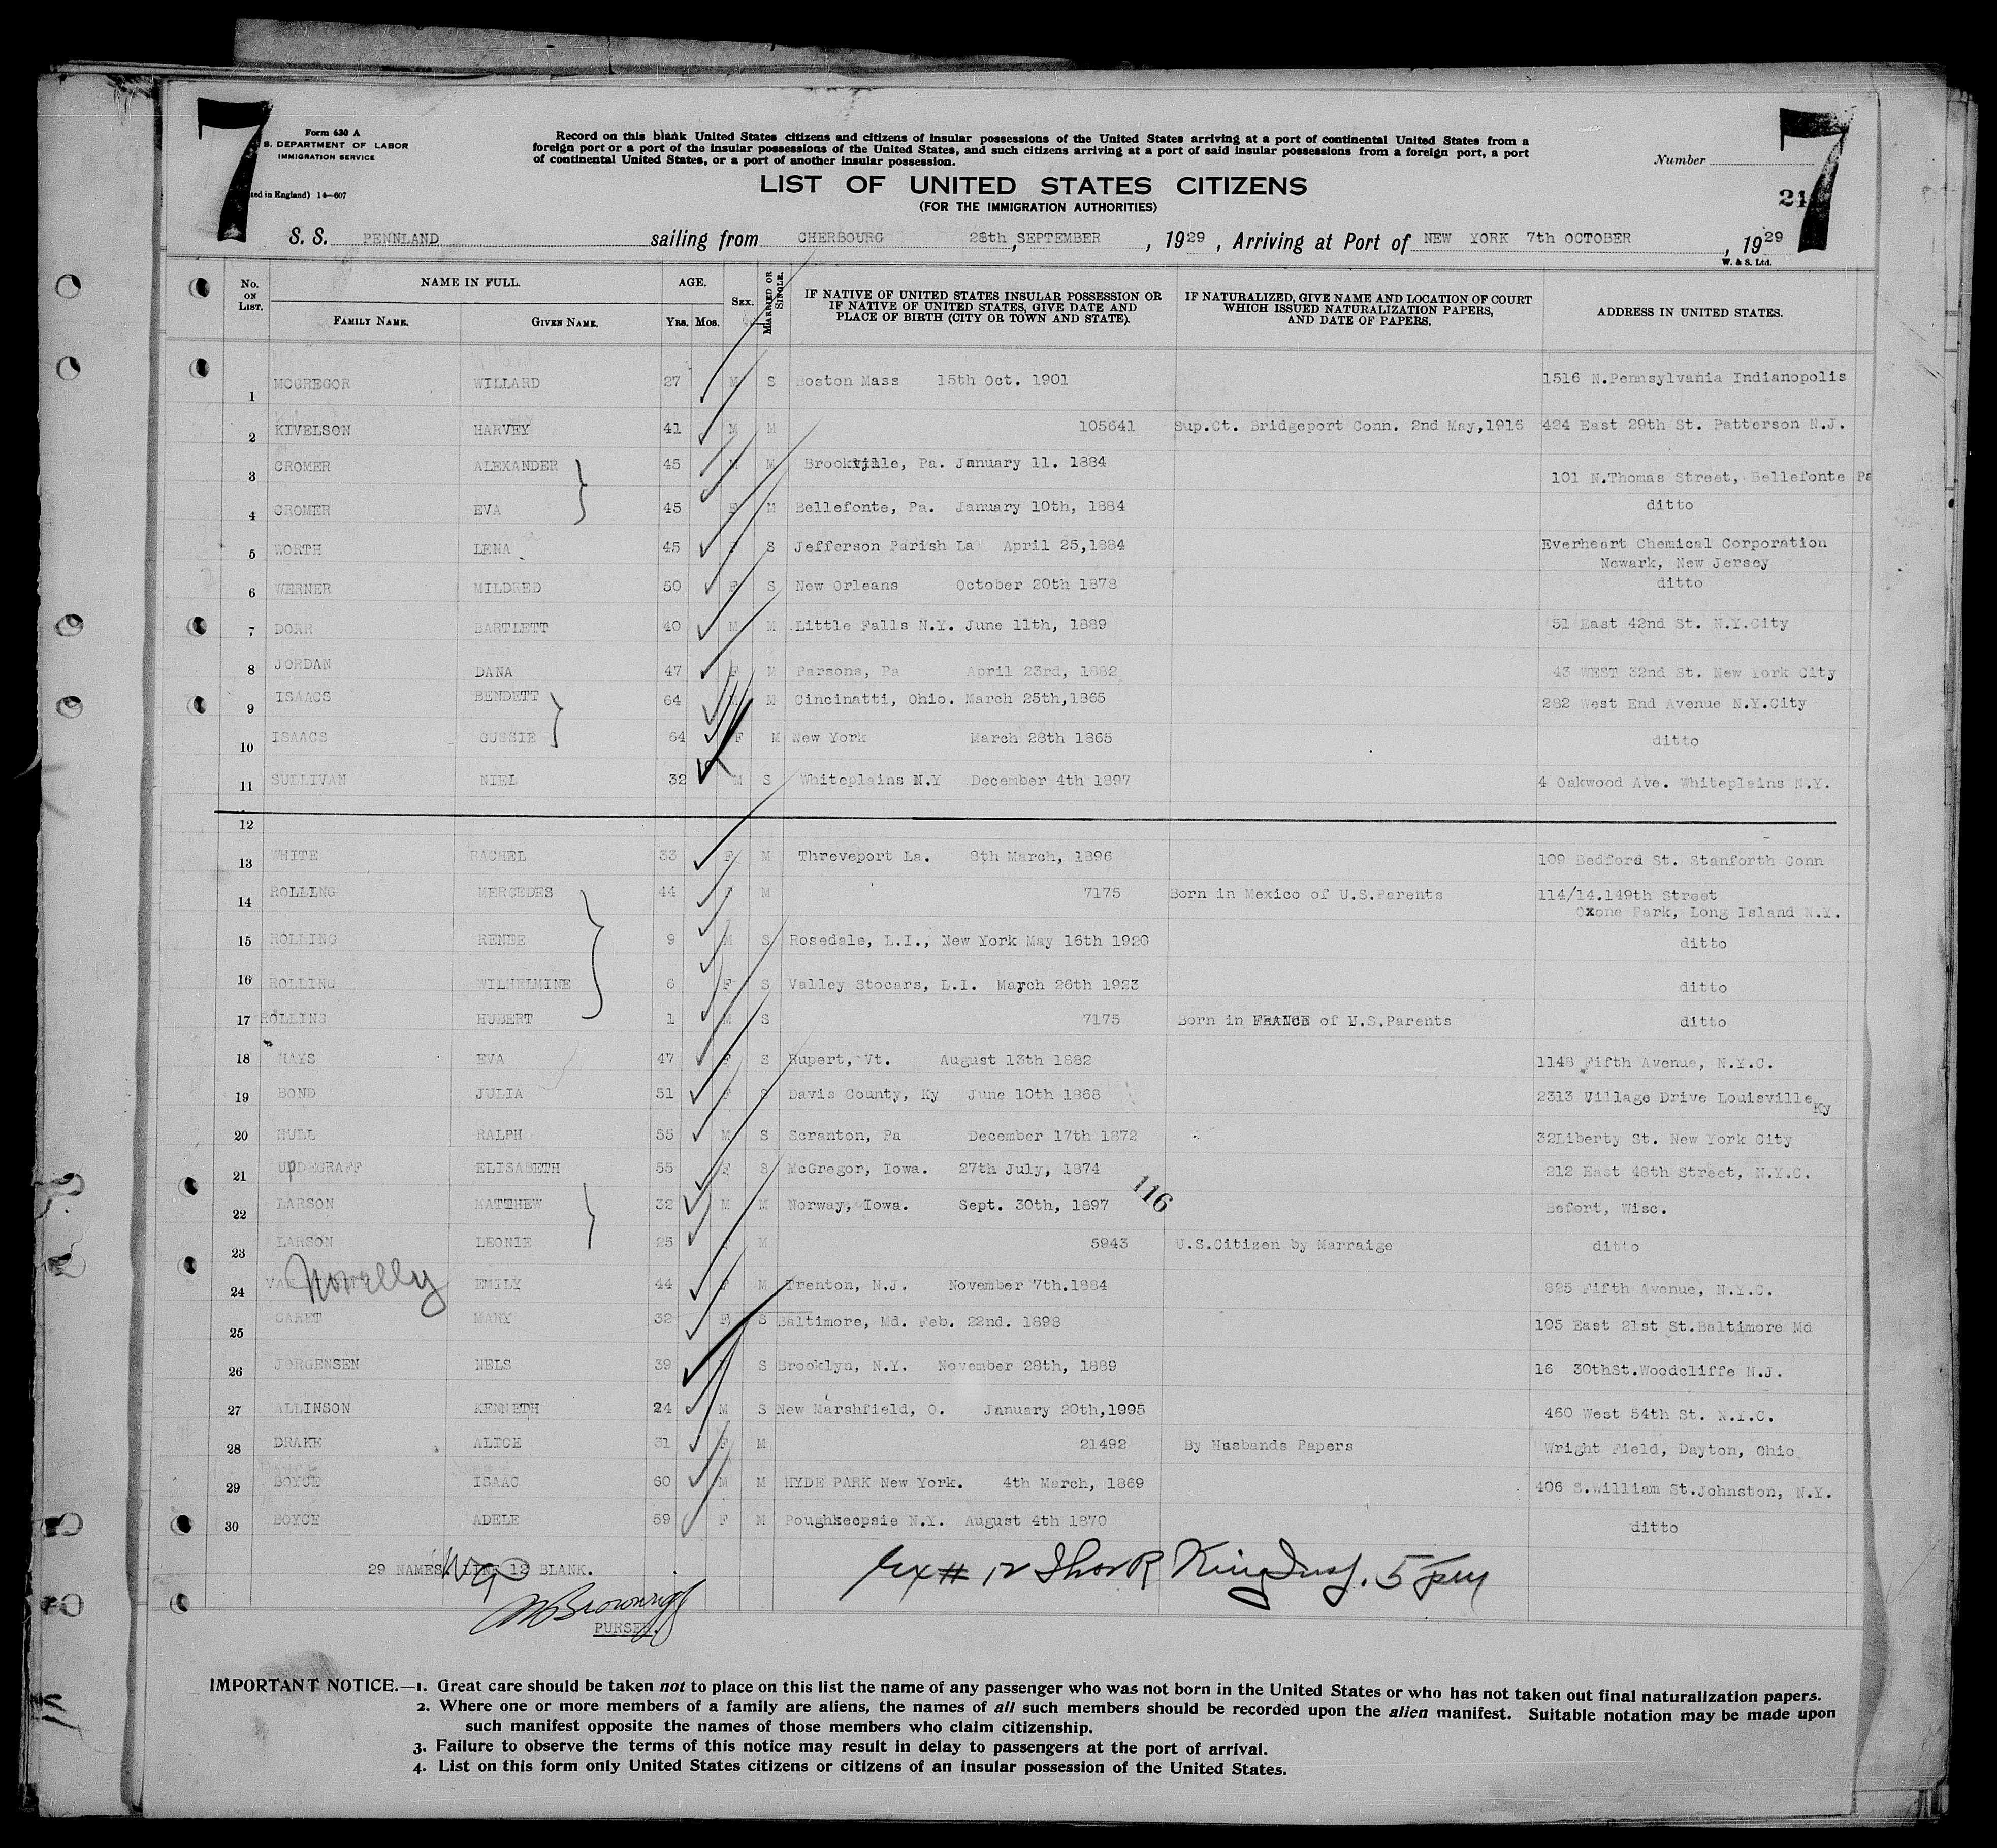 7
7
Form 630 A
S. DEPARTMENT OF LABOR
IMMIGRATION SERVICE
ted in England) 14—607
Record on this blank United States citizens and citizens of insular possessions of the United States arriving at a port of continental United States from a
foreign port or a port of the insular possessions of the United States, and such citizens arriving at a port of said insular possessions from a foreign port, a port
of continental United States, or a port of another insular possession.
Number
LIST OF UNITED STATES CITIZENS
(FOR THE IMMIGRATION AUTHORITIES)
21
S. S. PENNLAND sailing from CHERBOURG 28th, SEPTEMBER, 1929, Arriving at Port of NEW YORK 7th OCTOBER, 1929
W. & S. Ltd.
No. ON LIST. NAME IN FULL. FAMILY NAME. GIVEN NAME. AGE. Yrs. Mos. SEX. MARRIED OR SINGLE. IF NATIVE OF UNITED STATES INSULAR POSSESSION OR IF NATIVE OF UNITED STATES, GIVE DATE AND PLACE OF BIRTH (CITY OR TOWN AND STATE). IF NATURALIZED, GIVE NAME AND LOCATION OF COURT WHICH ISSUED NATURALIZATION PAPERS, AND DATE OF PAPERS. ADDRESS IN UNITED STATES.
1 MCGREGOR WILLARD 27 M S Boston Mass 15th Oct. 1901 1516 N.Pennsylvania Indianopolis
2 KIVELSON HARVEY 41 M M 105641 Sup.Ct. Bridgeport Conn. 2nd May,1916 424 East 29th St. Patterson N.J.
3 CROMER ALEXANDER 45 M M Brookville, Pa. January 11. 1884 101 N.Thomas Street, Bellefonte Pa
4 CROMER EVA 45 F M Bellefonte, Pa. January 10th, 1884 ditto
5 WORTH LENA 45 F S Jefferson Parish La April 25,1884 Everheart Chemical Corporation
Newark, New Jersey
6 WERNER MILDRED 50 F S New Orleans October 20th 1878 ditto
7 DORR BARTLETT 40 M M Little Falls N.Y. June 11th, 1889 51 East 42nd St. N.Y.City
8 JORDAN DANA 47 F M Parsons, Pa April 23rd, 1882 43 WEST 32nd St. New York City
9 ISAACS BENDETT 64 M M Cincinatti, Ohio. March 25th,1865 282 West End Avenue N.Y.City
10 ISAACS GUSSIE 64 F M New York March 28th 1865 ditto
11 SULLIVAN NIEL 32 M S Whiteplains N.Y December 4th 1897 4 Oakwood Ave. Whiteplains N.Y.
12
13 WHITE RACHEL 33 F M Threveport La. 8th March, 1896 109 Bedford St. Stanforth Conn
14 ROLLING MERCEDES 44 F M 7175 Born in Mexico of U.S.Parents 114/14.149th Street
Oxone Park, Long Island N.Y.
15 ROLLING RENEE 9 M S Rosedale, L.I., New York May 16th 1920 ditto
16 ROLLING WILHELMINE 6 F S Valley Stocars, L.I. March 26th 1923 ditto
17 ROLLING HUBERT 1 M S 7175 Born in FRANCE of U.S.Parents ditto
18 HAYS EVA 47 F S Rupert, Vt. August 13th 1882 1148 Fifth Avenue, N.Y.C.
19 BOND JULIA 51 F S Davis County, Ky June 10th 1868 2313 Village Drive Louisville Ky
20 HULL RALPH 55 M S Scranton, Pa December 17th 1872 32Liberty St. New York City
21 UPDEGRAFF ELISABETH 55 F S McGregor, Iowa. 27th July, 1874 212 East 48th Street, N.Y.C.
116
22 LARSON MATTHEW 32 M M Norway, Iowa. Sept. 30th, 1897 Befort, Wisc.
23 LARSON LEONIE 25 F M 5943 U.S.Citizen by Marraige ditto
24 EMILY 44 F M Trenton, N.J. November 7th.1884 825 Fifth Avenue, N.Y.C.
25 CARET MARY 32 F S Baltimore, Md. Feb. 22nd. 1898 105 East 21st St.Baltimore Md
26 JORGENSEN NELS 39 S Brooklyn, N.Y. November 28th, 1889 16 30thSt.Woodcliffe N.J.
27 ALLINSON KENNETH 24 M S New Marshfield, O. January 20th,1995 460 West 54th St. N.Y.C.
28 DRAKE ALICE 31 F M 21492 By Husbands Papers Wright Field, Dayton, Ohio
29 BOYCE ISAAC 60 M M HYDE PARK New York. 4th March, 1869 406 S.William St.Johnston, N.Y.
30 BOYCE ADELE 59 F M Poughkeepsie N.Y. August 4th 1870 ditto
29 NAMES. LINE 12 BLANK.
PURSER.
IMPORTANT NOTICE.—1. Great care should be taken not to place on this list the name of any passenger who was not born in the United States or who has not taken out final naturalization papers.
2. Where one or more members of a family are aliens, the names of all such members should be recorded upon the alien manifest. Suitable notation may be made upon
such manifest opposite the names of those members who claim citizenship.
3. Failure to observe the terms of this notice may result in delay to passengers at the port of arrival.
4. List on this form only United States citizens or citizens of an insular possession of the United States.